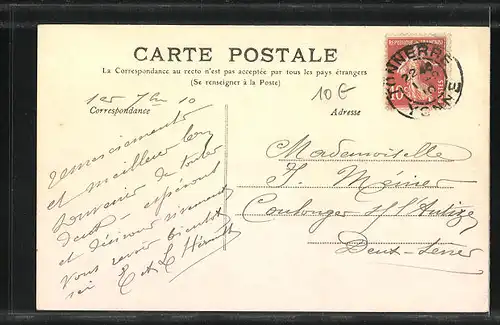 CARTE POSTALE
La Correspondance au recto n'est pas acceptée par tous les pays étrangers
(Se renseigner à la Poste)
1er 7bre 10
10 €
Correspondance
Adresse
remerciements
et meilleur bon
souvenir de toutes
deux - espérons
et désireux vivement
vous revoir bientôt
ici E et L
Mademoiselle
J. Ménier
Coulonges s/ l'Autize
Deux-Sèvres
REPUBLIQUE FRANÇAISE
10
POSTES
TONNERRE
YONNE